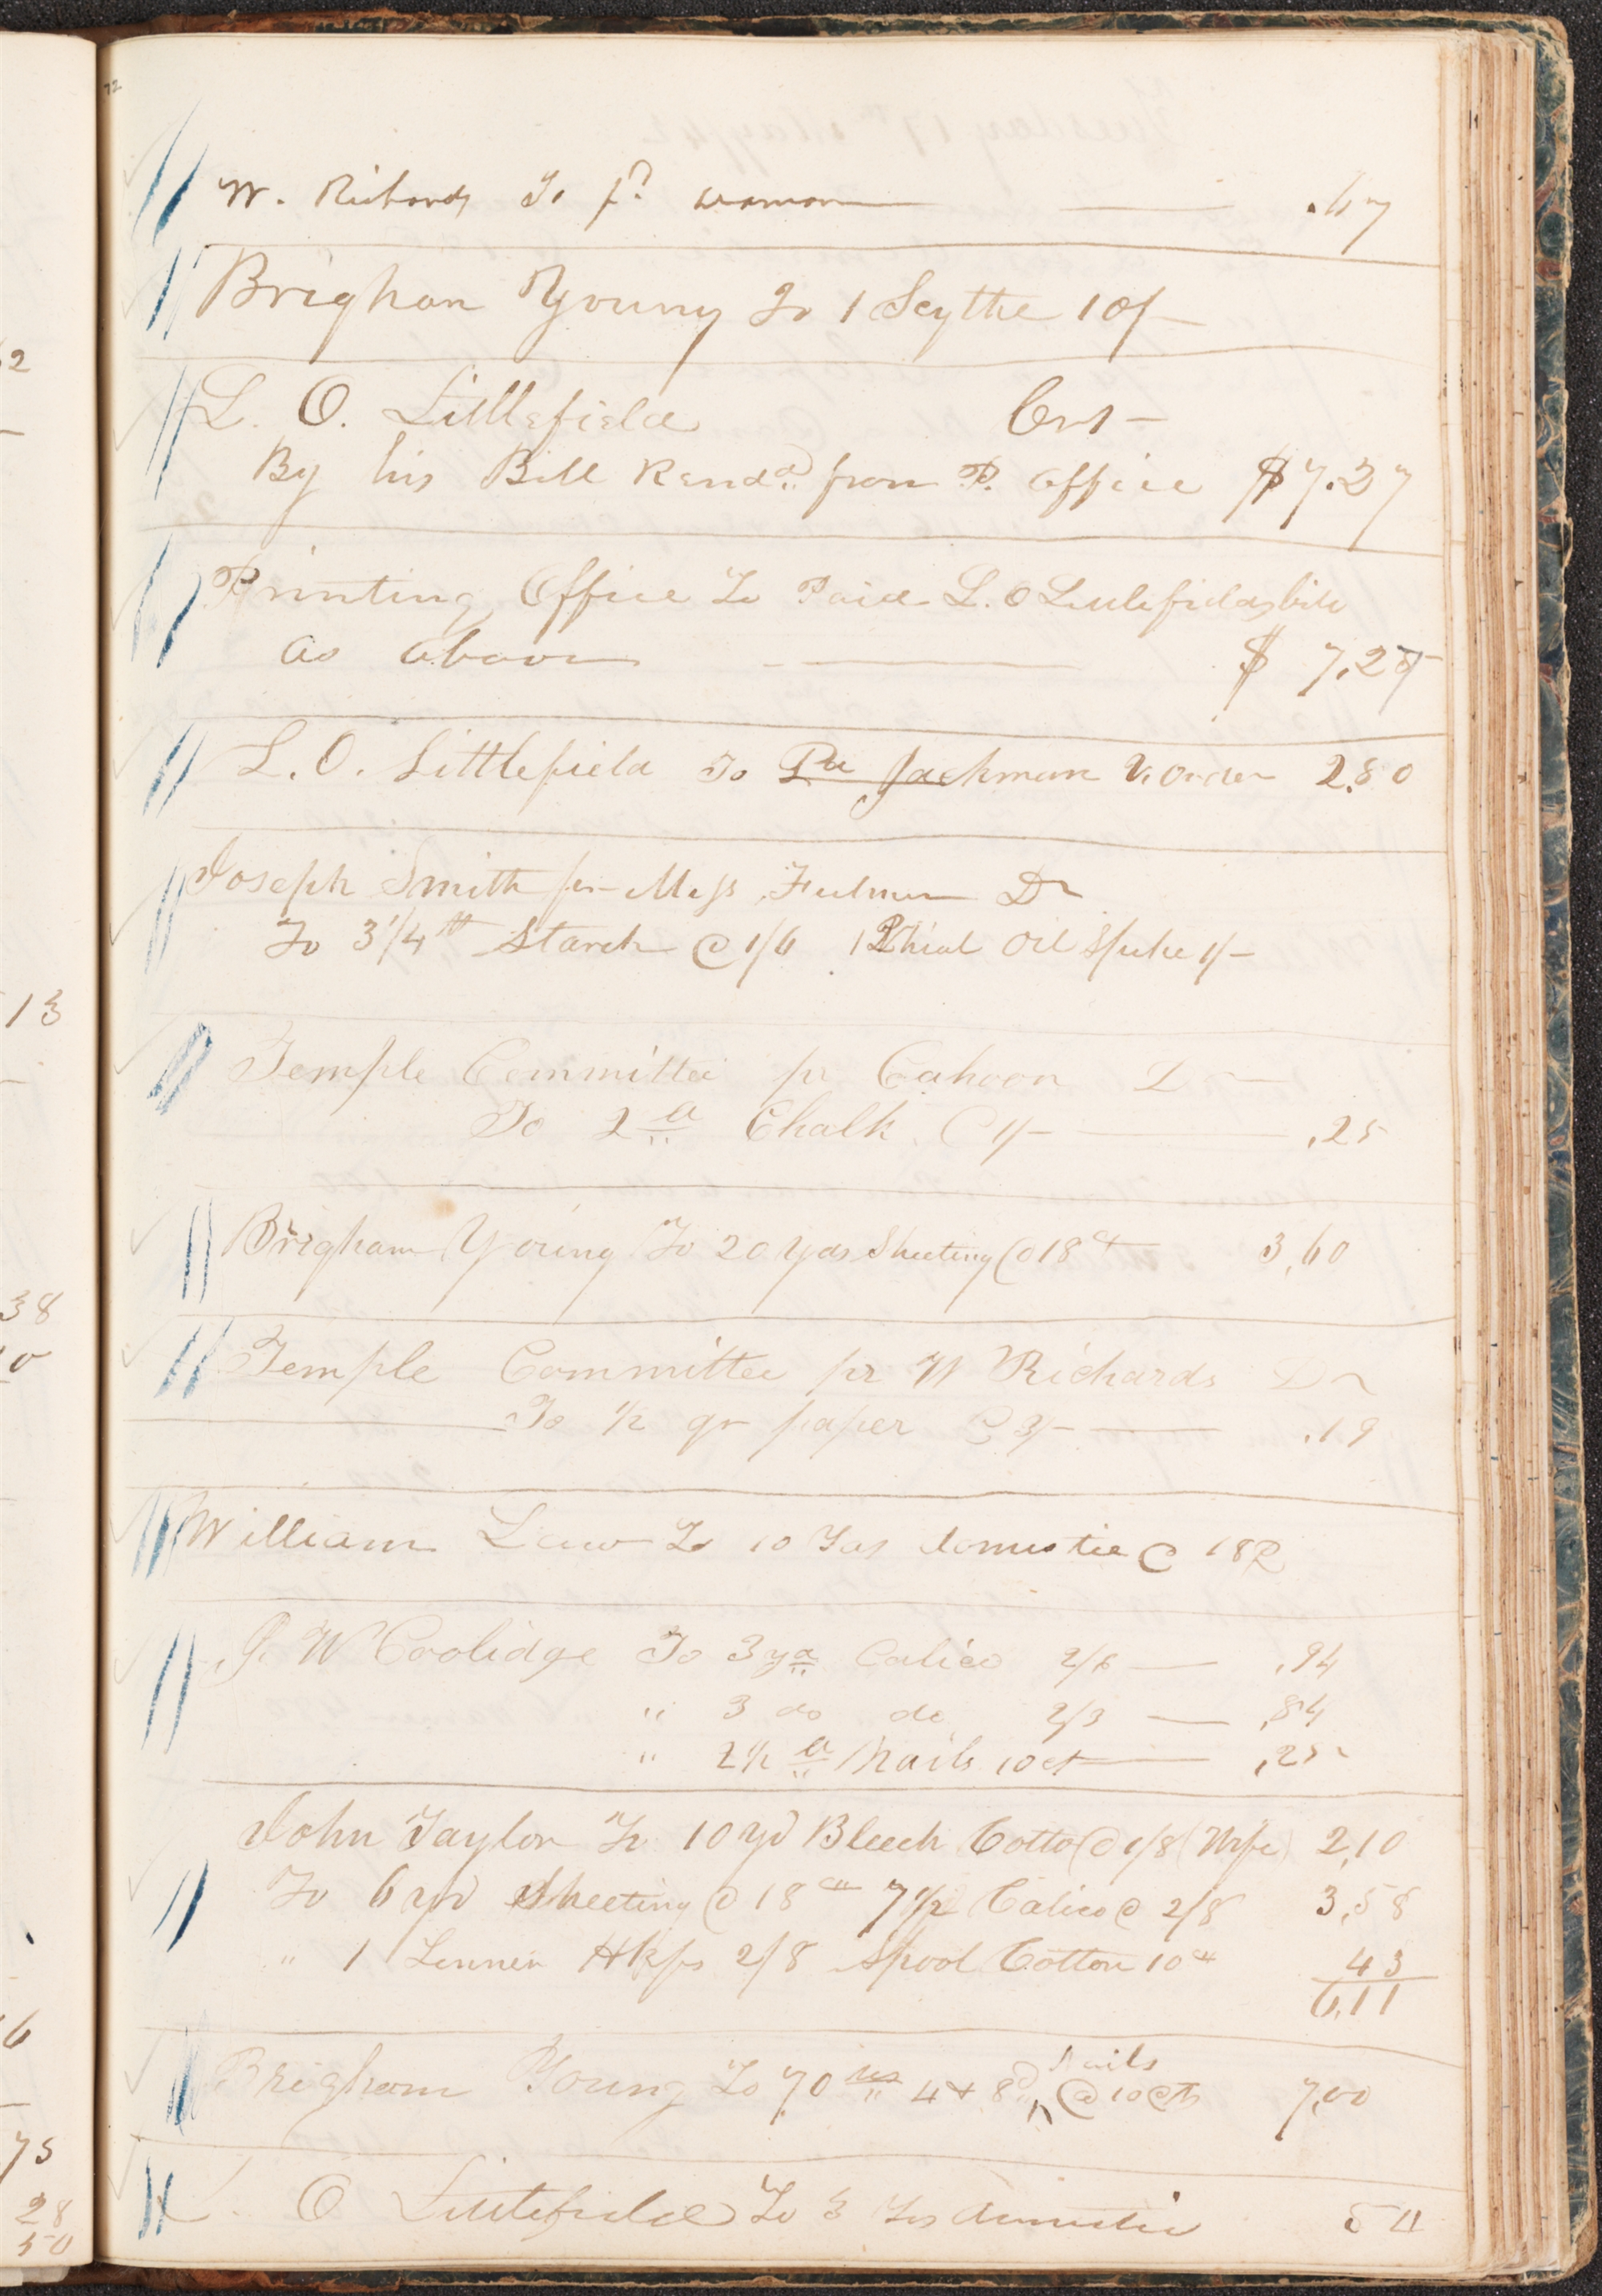 72
W. Richards To pd woman .67
Brigham Young To 1 Scythe 10/-
L. O. Littlefield Cr
By his Bill Rendd. from P. Office $7.27
Printing Office To Paid L. O Littlefields bill
as above $ 7.27
L. O. Littlefield To Pd Jackman Order 2.50
Joseph Smith pr Miss Dr
To 3 1/4 lb Starch @ 1/6 1 Phial Oil Spike 1/-
Temple Committee pr Cahoon Dr
To 2 lb Chalk @ 1/- .25
Brigham Young To 20 yds Sheeting @ 18 ct 3.60
Temple Committee pr W Richards Dr
To 1/2 qr paper @ 3/- .19
William Law To 10 Yds domestic @ 18
J. W Coolidge To 3 yd Calico 2/6 .94
" 3 do do 2/3 .84
" 2 1/2 lb Nails 10 ct .25
John Taylor To 10 yd Bleech Cotto @ 1/8 (Wife) 2.10
To 6 yd Sheeting @ 18 ct 7 1/2 Calico @ 2/8 3.58
" 1 Linnen Hkfs 2/8 Spool Cotton 10 ct 43
6.11
Brigham Young To 70 lbs 4 & 8d Nails @ 10 cts 7.00
L. O Littlefield To 3 Yds domestic 54
2
13
38
0
6
75
28
50